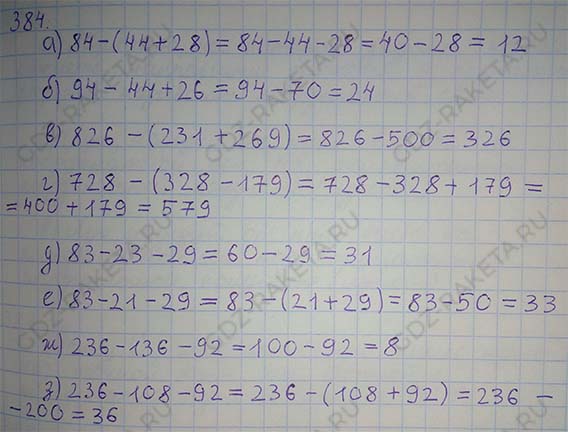 384.
а) 84-(44+28)=84-44-28=40-28=12
б) 94-44+26=94-70=24
в) 826-(231+269)=826-500=326
г) 728-(328-179)=728-328+179=
=400+179=579
д) 83-23-29=60-29=31
е) 83-21-29=83-(21+29)=83-50=33
ж) 236-136-92=100-92=8
з) 236-108-92=236-(108+92)=236-
-200=36
GDZ-RAKETA.RU